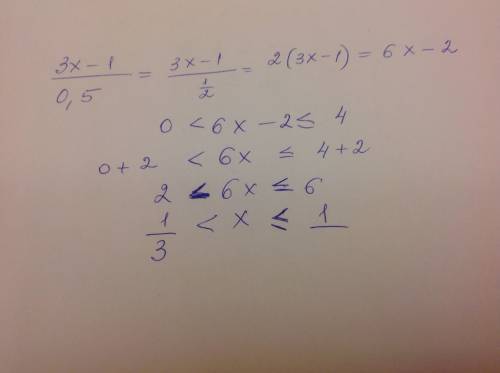 (3x-1)/(0,5) = (3x-1)/(1/2) = 2(3x-1) = 6x-2
0 < 6x - 2 ≤ 4
0+2 < 6x ≤ 4+2
2 < 6x ≤ 6
1/3 < x ≤ 1